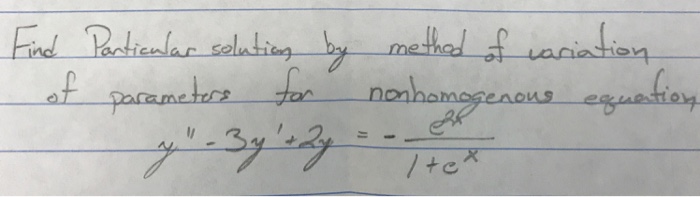 Find Particular solution by method of variation
of parameters for nonhomogenous equation
y'' - 3y' + 2y = - e^{2x} / 1 + e^x